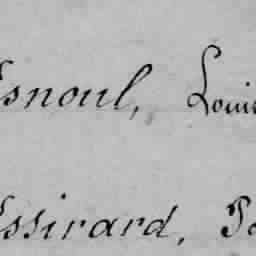 Esnoul, Louis
Essirard, P